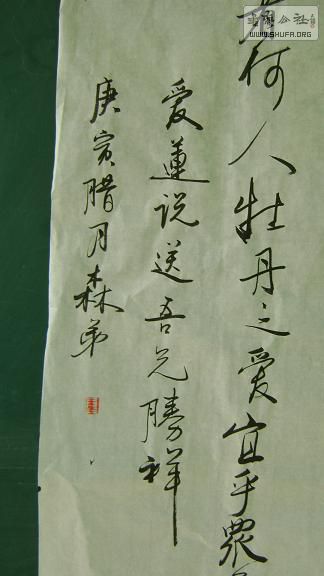 何人牡丹之爱宜乎眾
爱蓮说送吾兄勝祥
庚寅腊月森弟
WWW.SHUFA.ORG